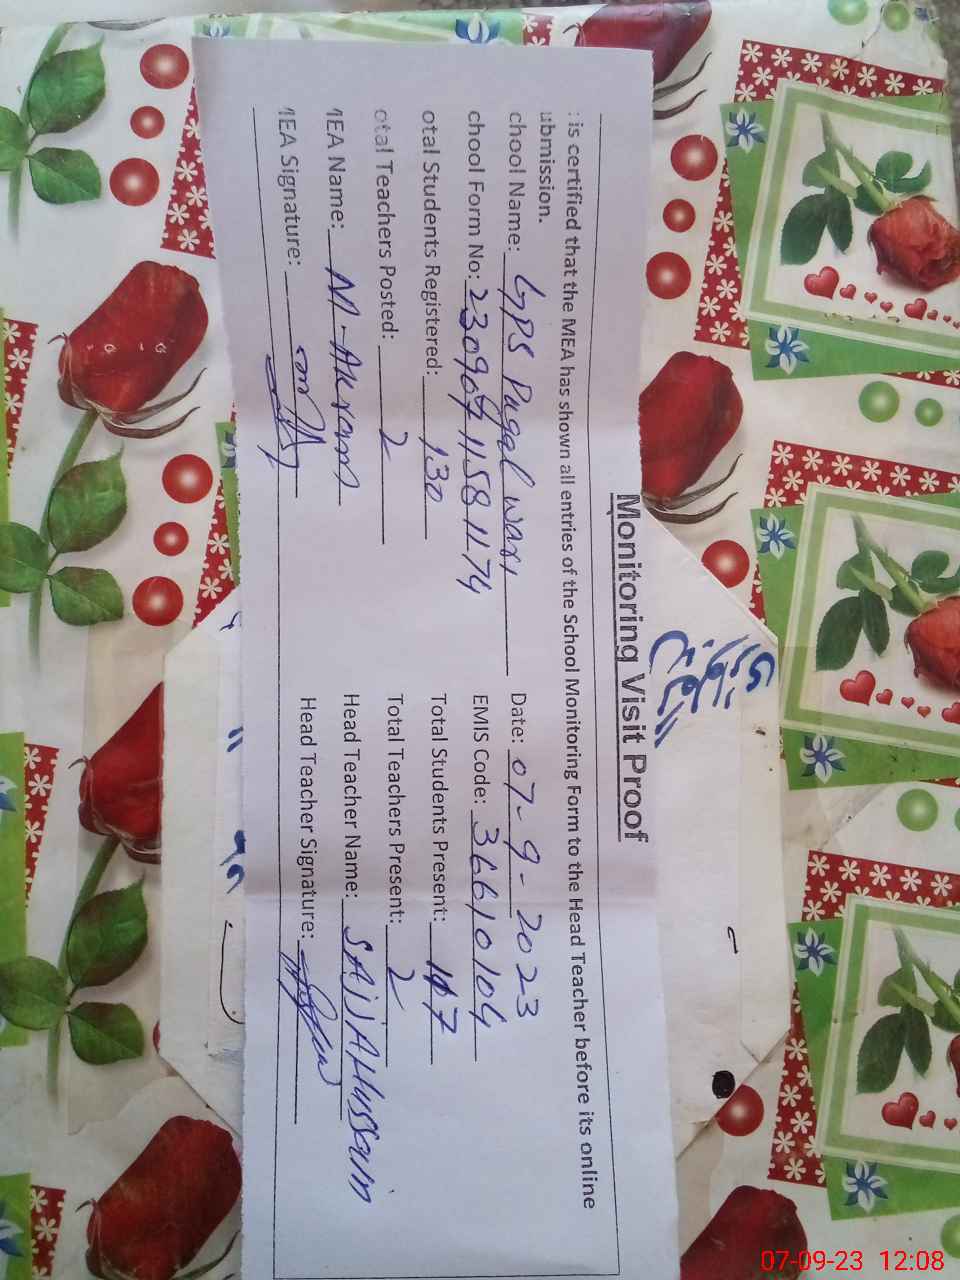 Monitoring Visit Proof
: is certified that the MEA has shown all entries of the School Monitoring Form to the Head Teacher before its online
ubmission.
chool Name: GPS Pugal wari Date: 07-9-2023
chool Form No: EMIS Code: 36610104
otal Students Registered: 130 Total Students Present: 117
otal Teachers Posted: 2 Total Teachers Present: 2
MEA Name: M-Akram Head Teacher Name: SAjjAd Hussain
MEA Signature: Head Teacher Signature:
07-09-23 12:08